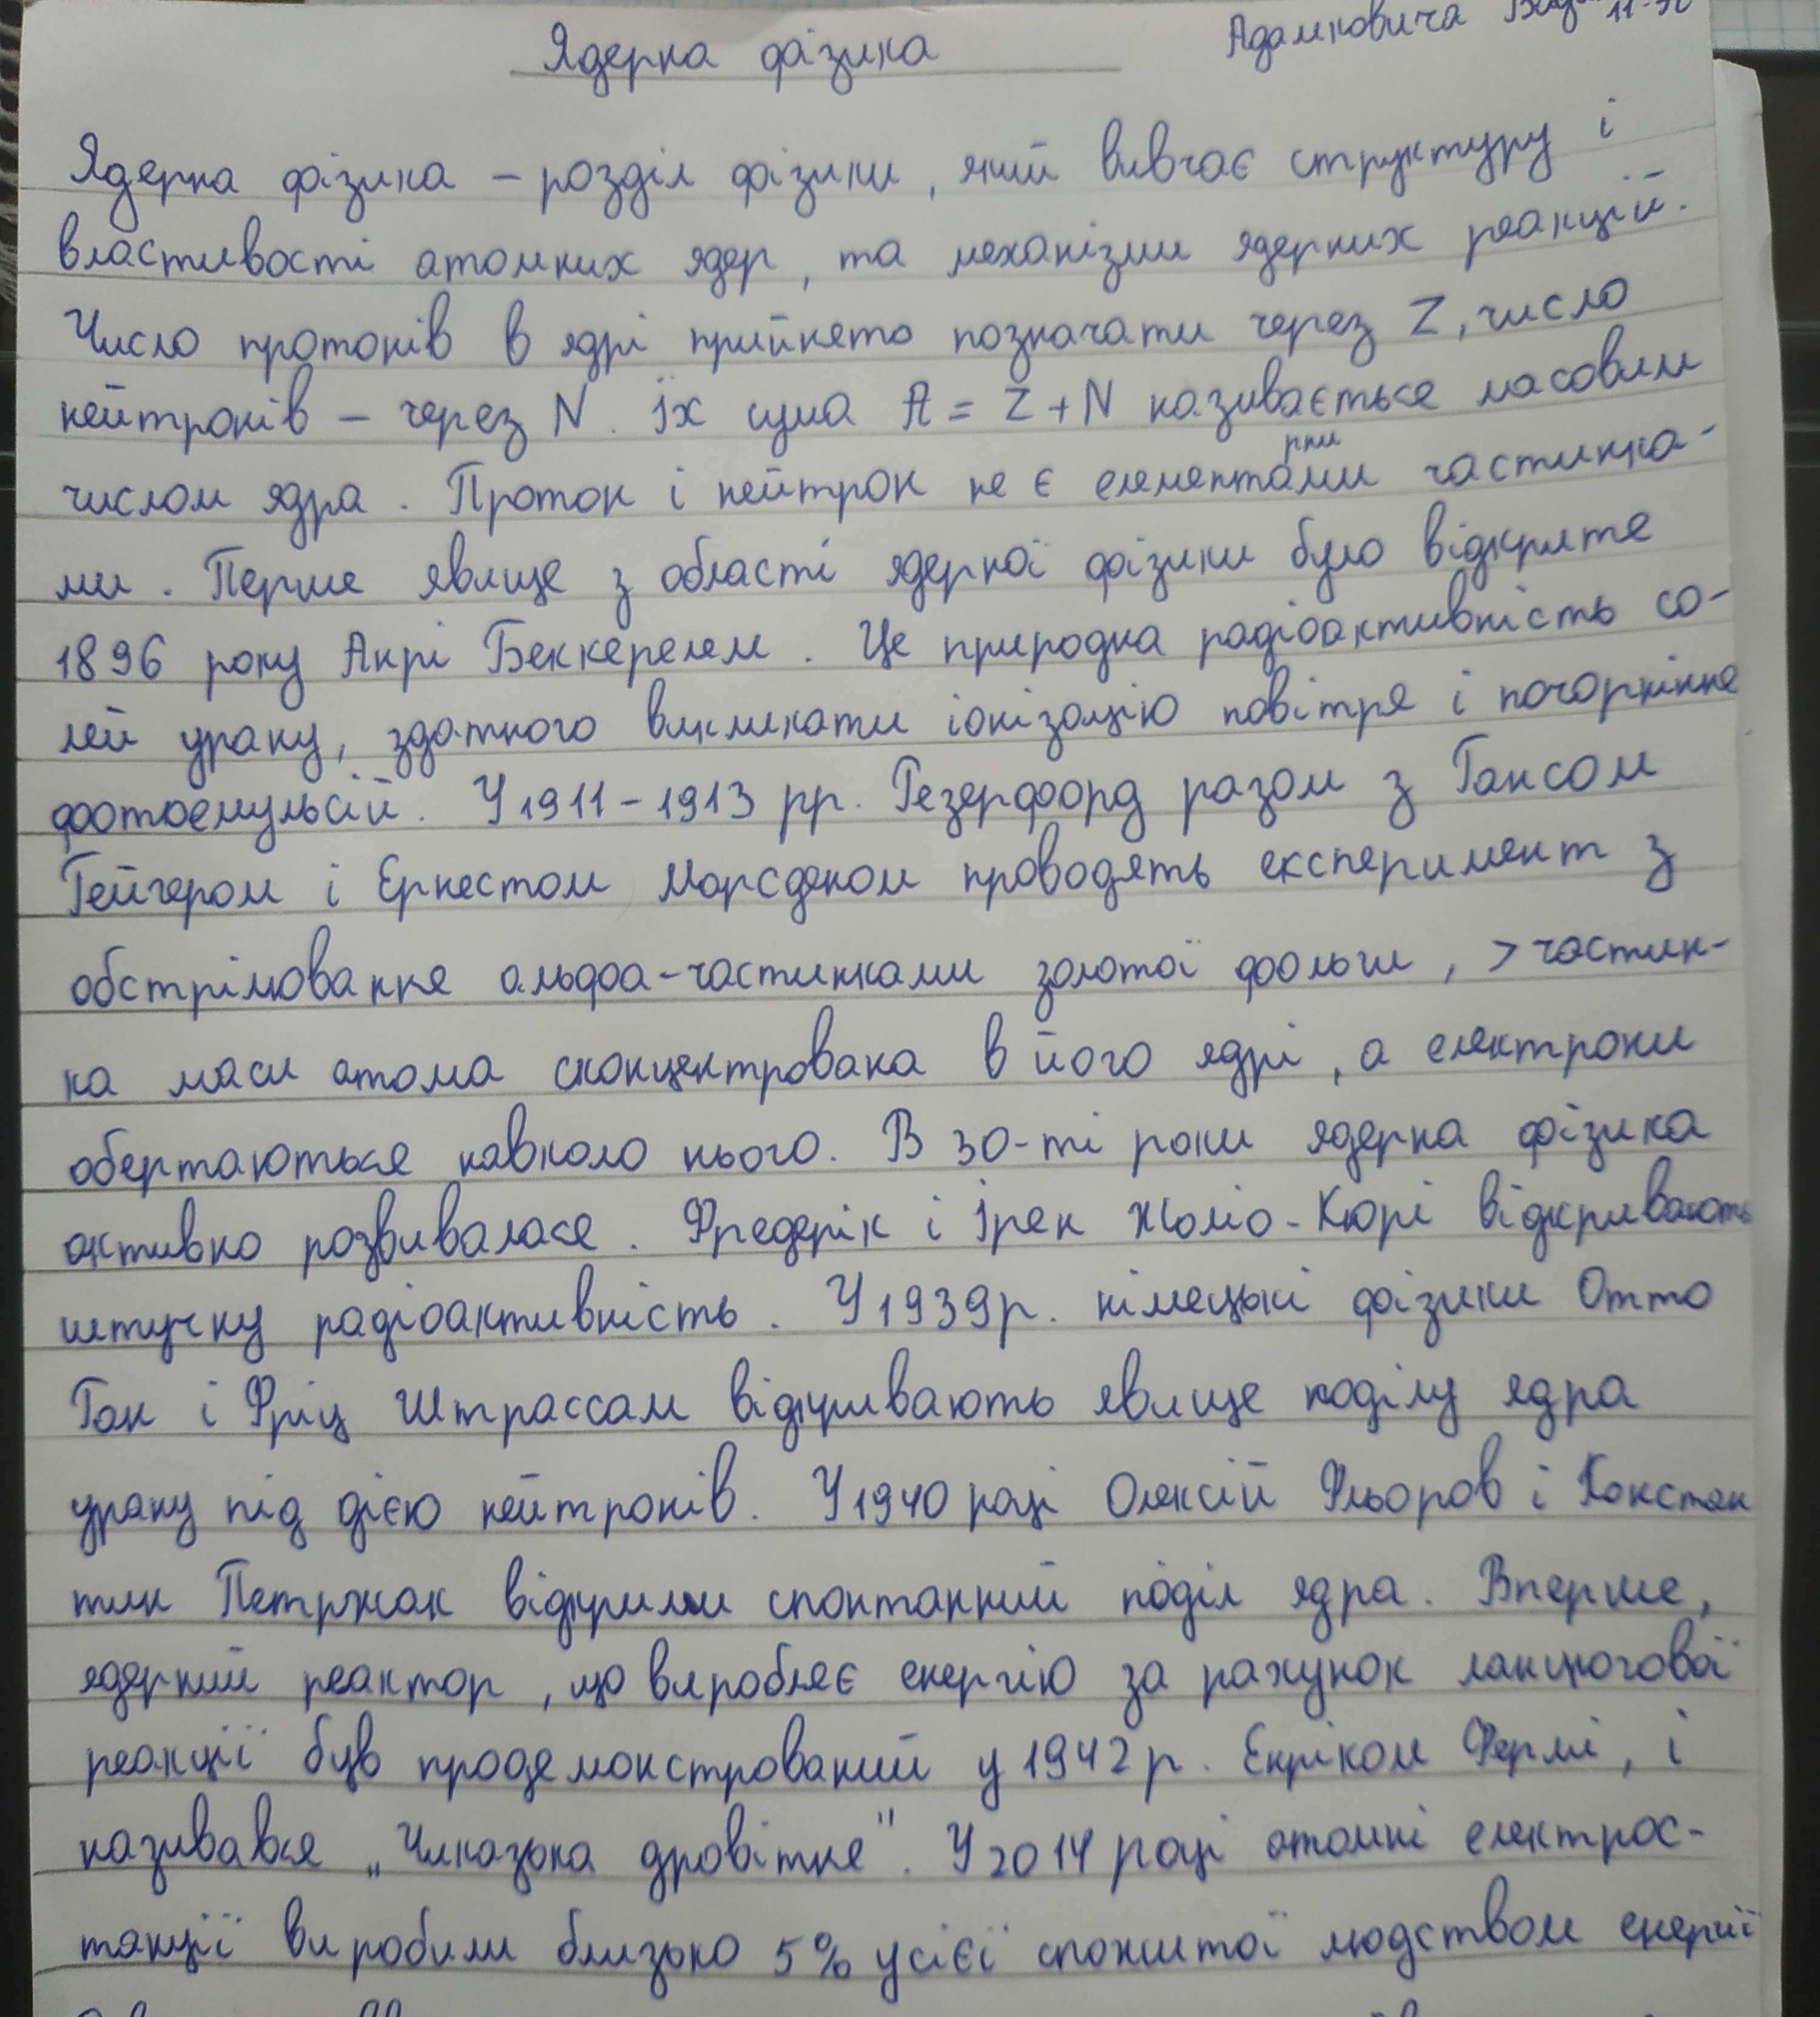 Ядерна фізика
Адамковича
Ядерна фізика – розділ фізики, який вивчає структуру і
властивості атомних ядер, та механізми ядерних реакцій.
Число протонів в ядрі прийнято позначати через Z, число
нейтронів – через N. Їх сума A = Z + N називається масовим
рни
числом ядра. Протон і нейтрон не є елементами частинка-
ми. Перше явище з області ядерної фізики було відкрите
1896 року Анрі Беккерелем. Це природна радіоактивність со-
лей урану, здатного викликати іонізацію повітря і почорніння
фотоемульсій. У 1911–1913 рр. Резерфорд разом з Гансом
Гейгером і Ернестом Марсденом проводять експеримент з
обстрілювання альфа-частинками золотої фольги, > частин-
ка маси атома сконцентрована в його ядрі, а електрони
обертаються навколо нього. В 30-ті роки ядерна фізика
активно розвивалася. Фредерік і Ірен Жоліо-Кюрі відкривають
штучну радіоактивність. У 1939р. німецькі фізики Отто
Ган і Фріц Штрассам відкривають явище поділу ядра
урану під дією нейтронів. У 1940 році Олексій Фльоров і Констан
тин Петржак відкрили спонтанний поділ ядра. Вперше,
ядерний реактор, що виробляє енергію за рахунок ланцюгової
реакції був продемонстрований у 1942р. Енріком Фермі, і
називався „Чиказька дровітня". У 2014 році атомні електрос-
танції виробили близько 5% усієї спожитої людством енергії